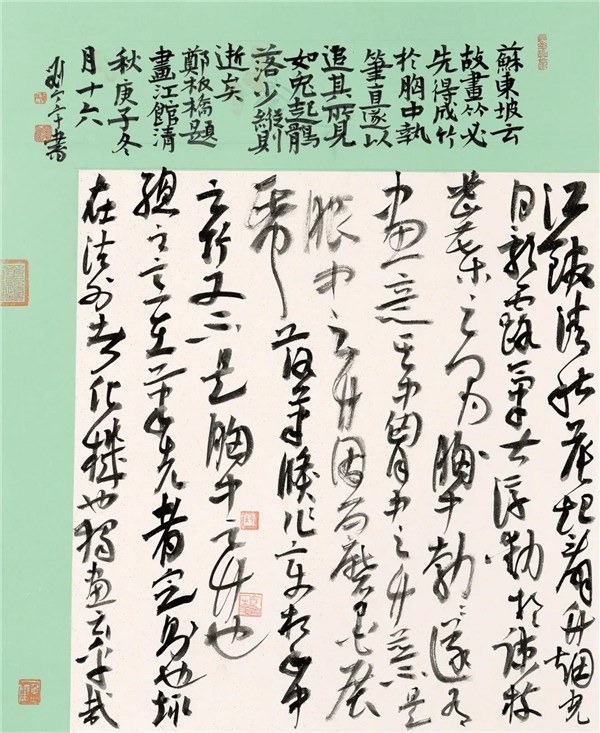 蘇東坡云
故畫竹必
先得成竹
於胸中執
筆直遂以
追其所見
如兔起鶻
落少縱則
逝矣
鄭板橋題
畫江館清
秋庚子冬
月十六
書
江館清秋晨起看竹烟光
日影露氣皆浮動於疎枝
密葉之間胸中勃勃遂有
畫意其實胸中之竹並不是
眼中之竹因而磨墨展
紙落筆倏作變相手中
之竹又不是胸中之竹也
總之意在筆先者定則也趣
在法外者化機也獨畫云乎哉